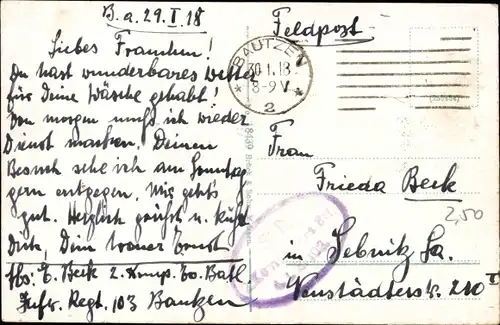 B. a. 29. I. 18
Liebes Frauchen!
Du hast wunderbares Wetter
für Deine Wäsche gehabt!
Von morgen muß ich wieder
Dienst machen. Deinen
Besuch sehe ich am Sonntag
gern entgegen. Mir geht's
gut. Herzlich grüßt u. küßt
Dich, Dein Ernst
Abs: E. Beck 2. Komp. Batl.
Inftr. Regt. 103 Bautzen
Feldpost
BAUTZEN
30.1.18
8-9 V.
2
Frau
Frieda Beck
2,50
in Sebnitz Sa.
Neustädterstr. 210 I